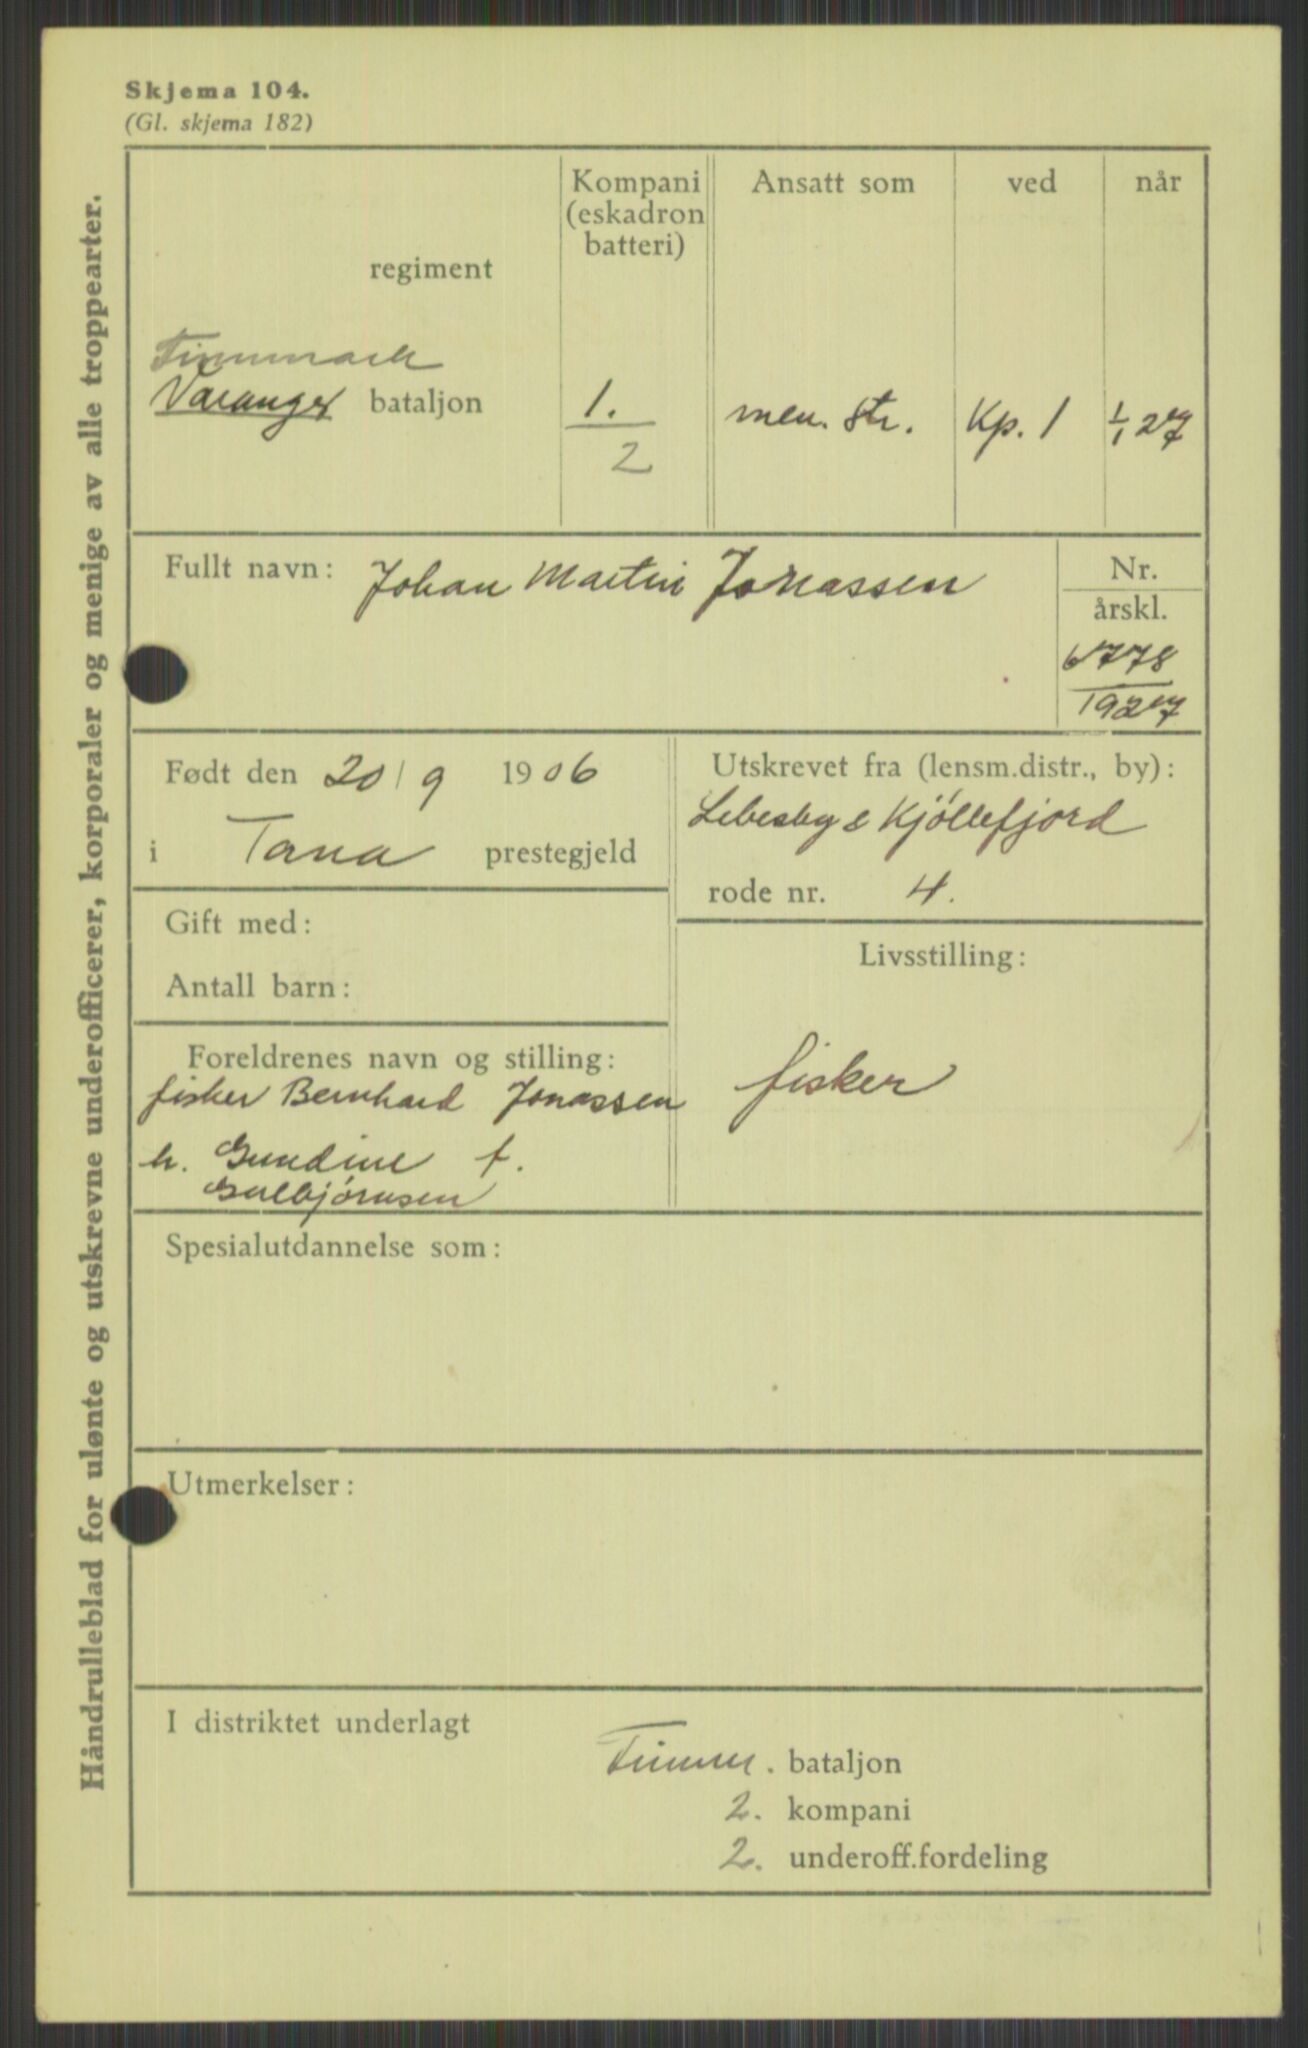 Skjema 104.
(Gl. skjema 182)
Håndrulleblad for ulønte og utskrevne underofficerer, korporaler og menige av alle troppearter.
regiment
Kompani
(eskadron
batteri)
Ansatt som
ved
når
Finnmark
Varanger bataljon
1.
2
men. str.
Kp. 1
1/1 27
Fullt navn: Johan Martin Jonassen
Nr.
årskl.
6778
1927
Født den 20/9 1906
i Tana prestegjeld
Utskrevet fra (lensm.distr., by):
Lebesby & Kjøllefjord
rode nr. 4.
Gift med:
Antall barn:
Livsstilling:
fisker
Foreldrenes navn og stilling:
fisker Bernhard Jonassen
h. Gundine f.
Gulbjørnsen
Spesialutdannelse som:
Utmerkelser:
I distriktet underlagt
Finnm. bataljon
2. kompani
2. underoff.fordeling